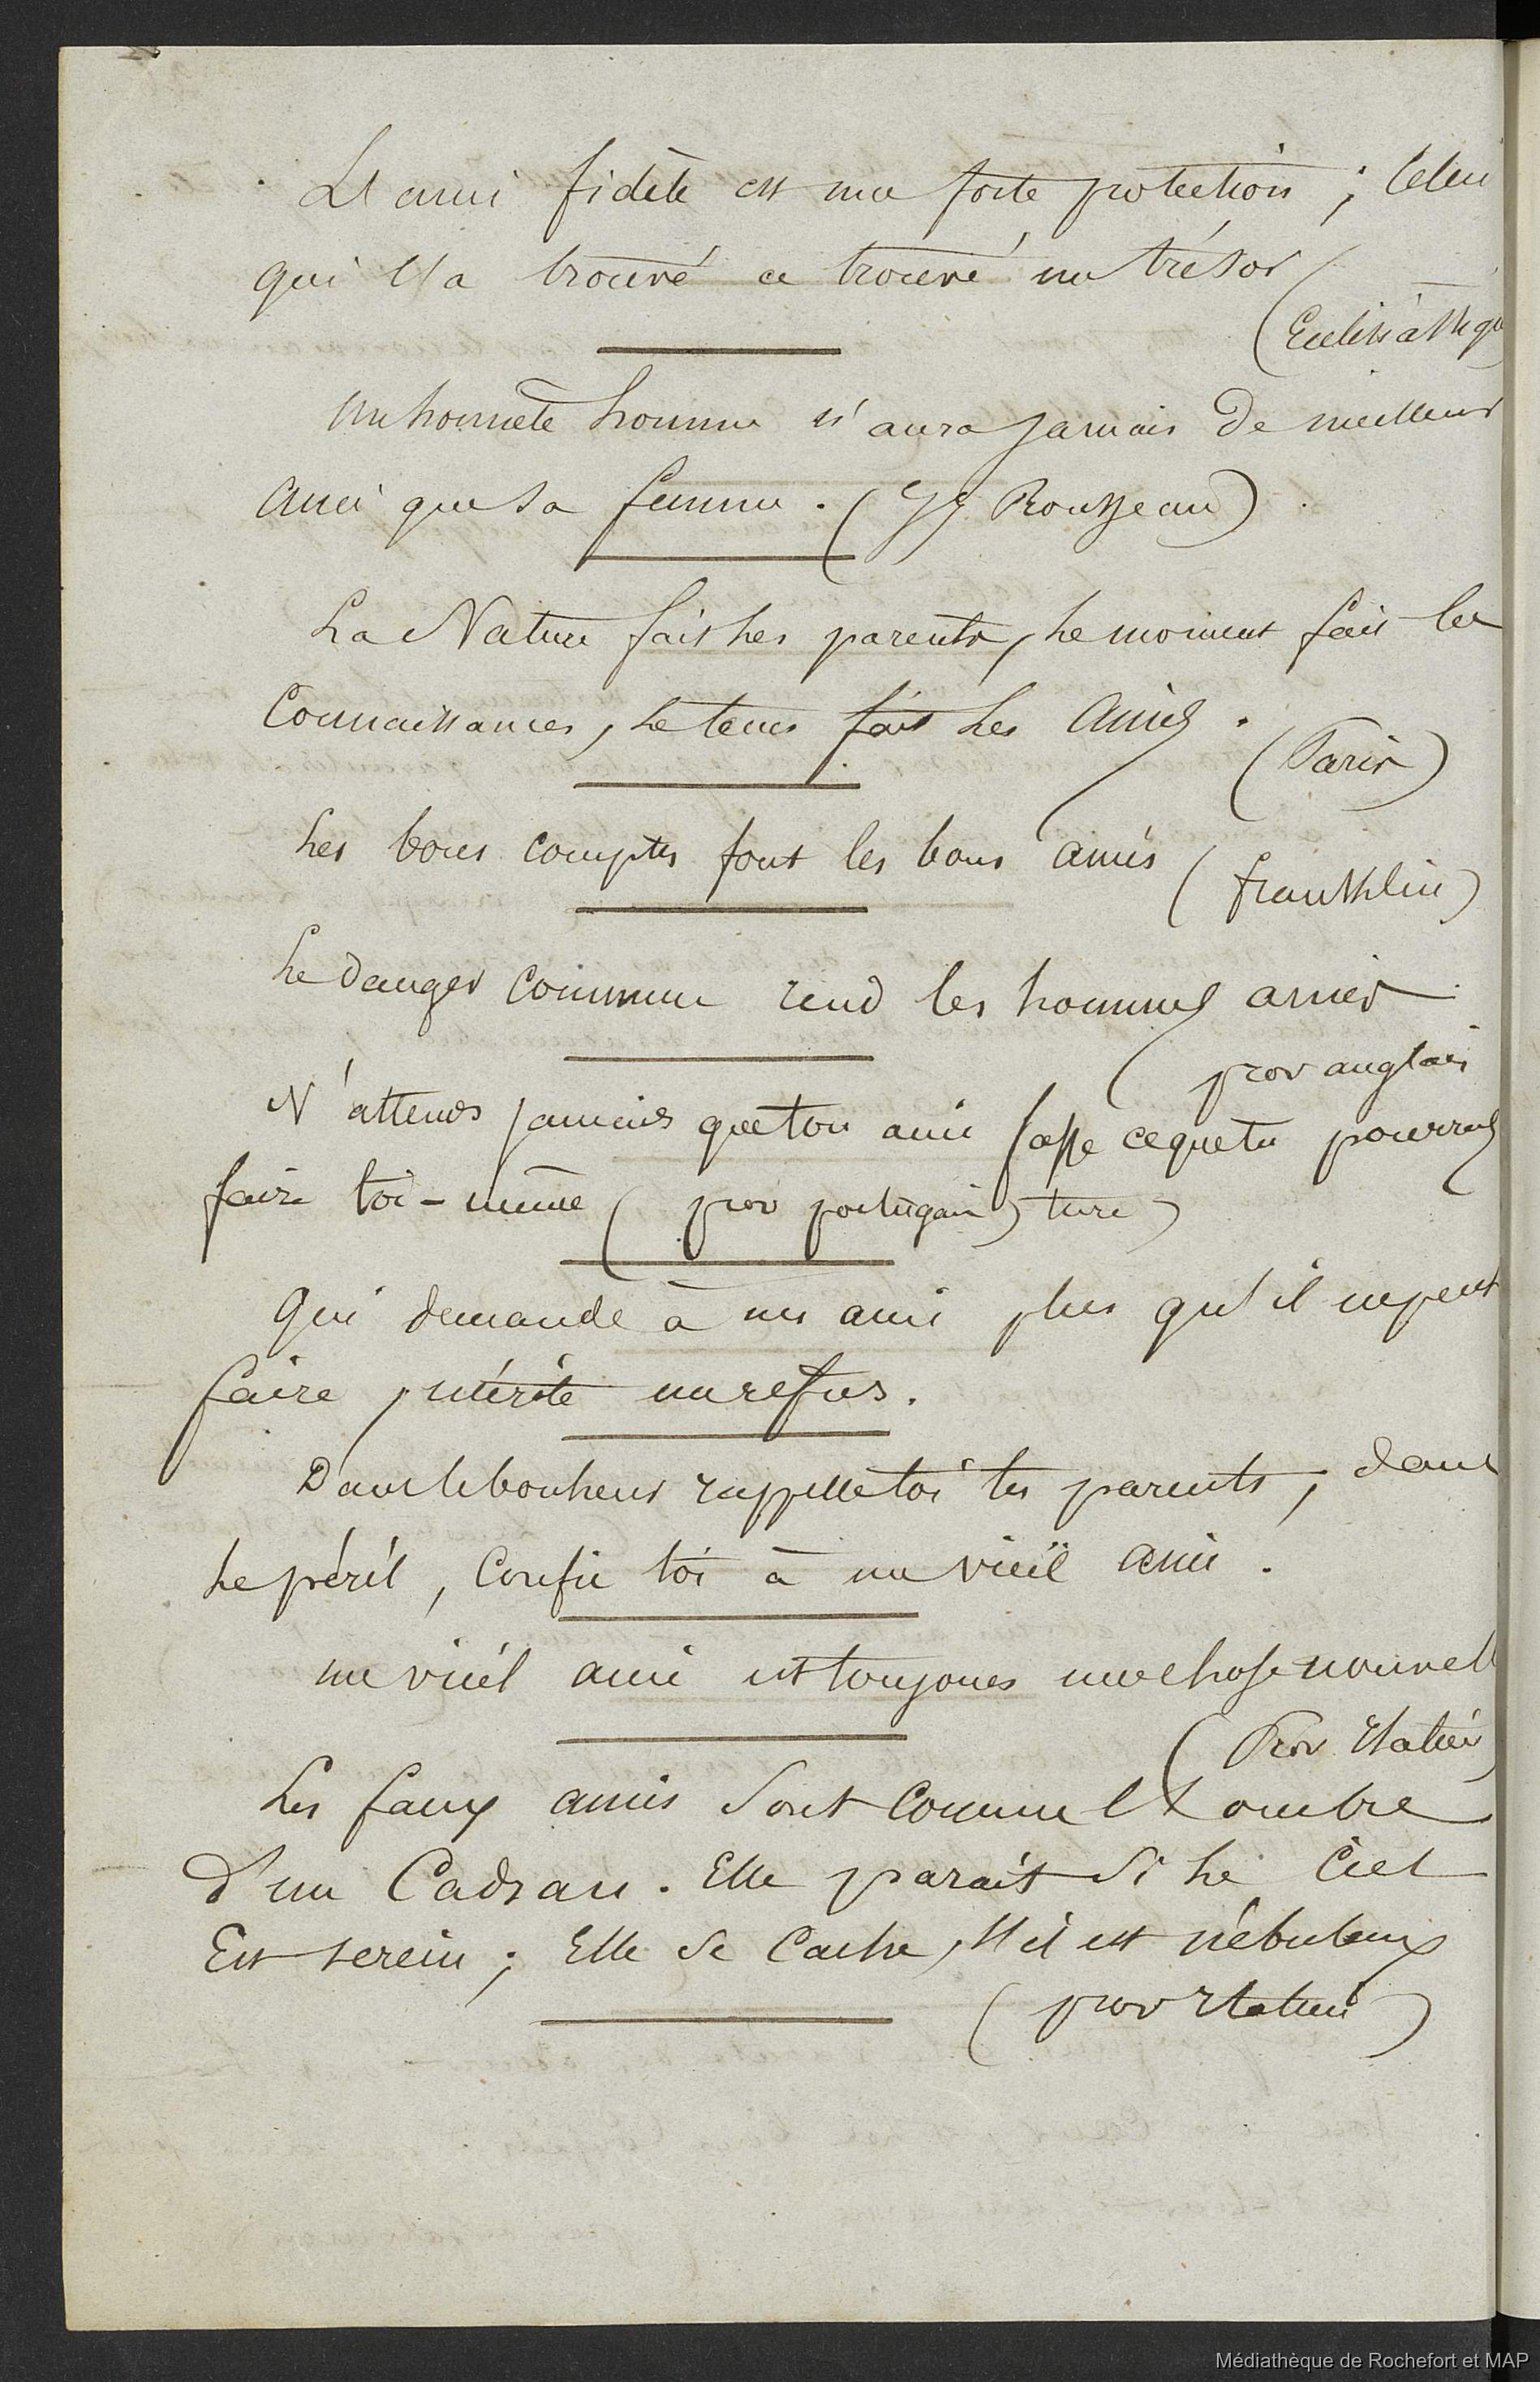 L'ami fidèle est une forte protection ; Celui
qui l'a trouvé a trouvé un trésor
(Ecclésiastiqu
Un honnête homme n'aura jamais de meilleur
ami que sa femme. (JJ Rousseau)
La Nature fait les parents, le moment fait les
Connaissances, le tems fait les Amis.
(Paris)
Les bons comptes font les bons amis
(franklin)
Le danger commun rend les hommes amis
(prov anglais
N'attends jamais que ton ami fasse ce que tu pourrais
faire toi-même (prov portugais) turc)
Qui demande à un ami plus qu'il ne peut
faire mérite un refus.
Dans le bonheur rappelle toi tes parents ; dans
le péril, Confie toi à un vieil ami.
un vieil ami est toujours une chose nouvell
(Prov Italien)
Les faux amis sont comme l'ombre
d'un Cadran. Elle parait si le Ciel
Est serein ; Elle se Cache, s'il est nébuleux
(prov Italien)
Médiathèque de Rochefort et MAP